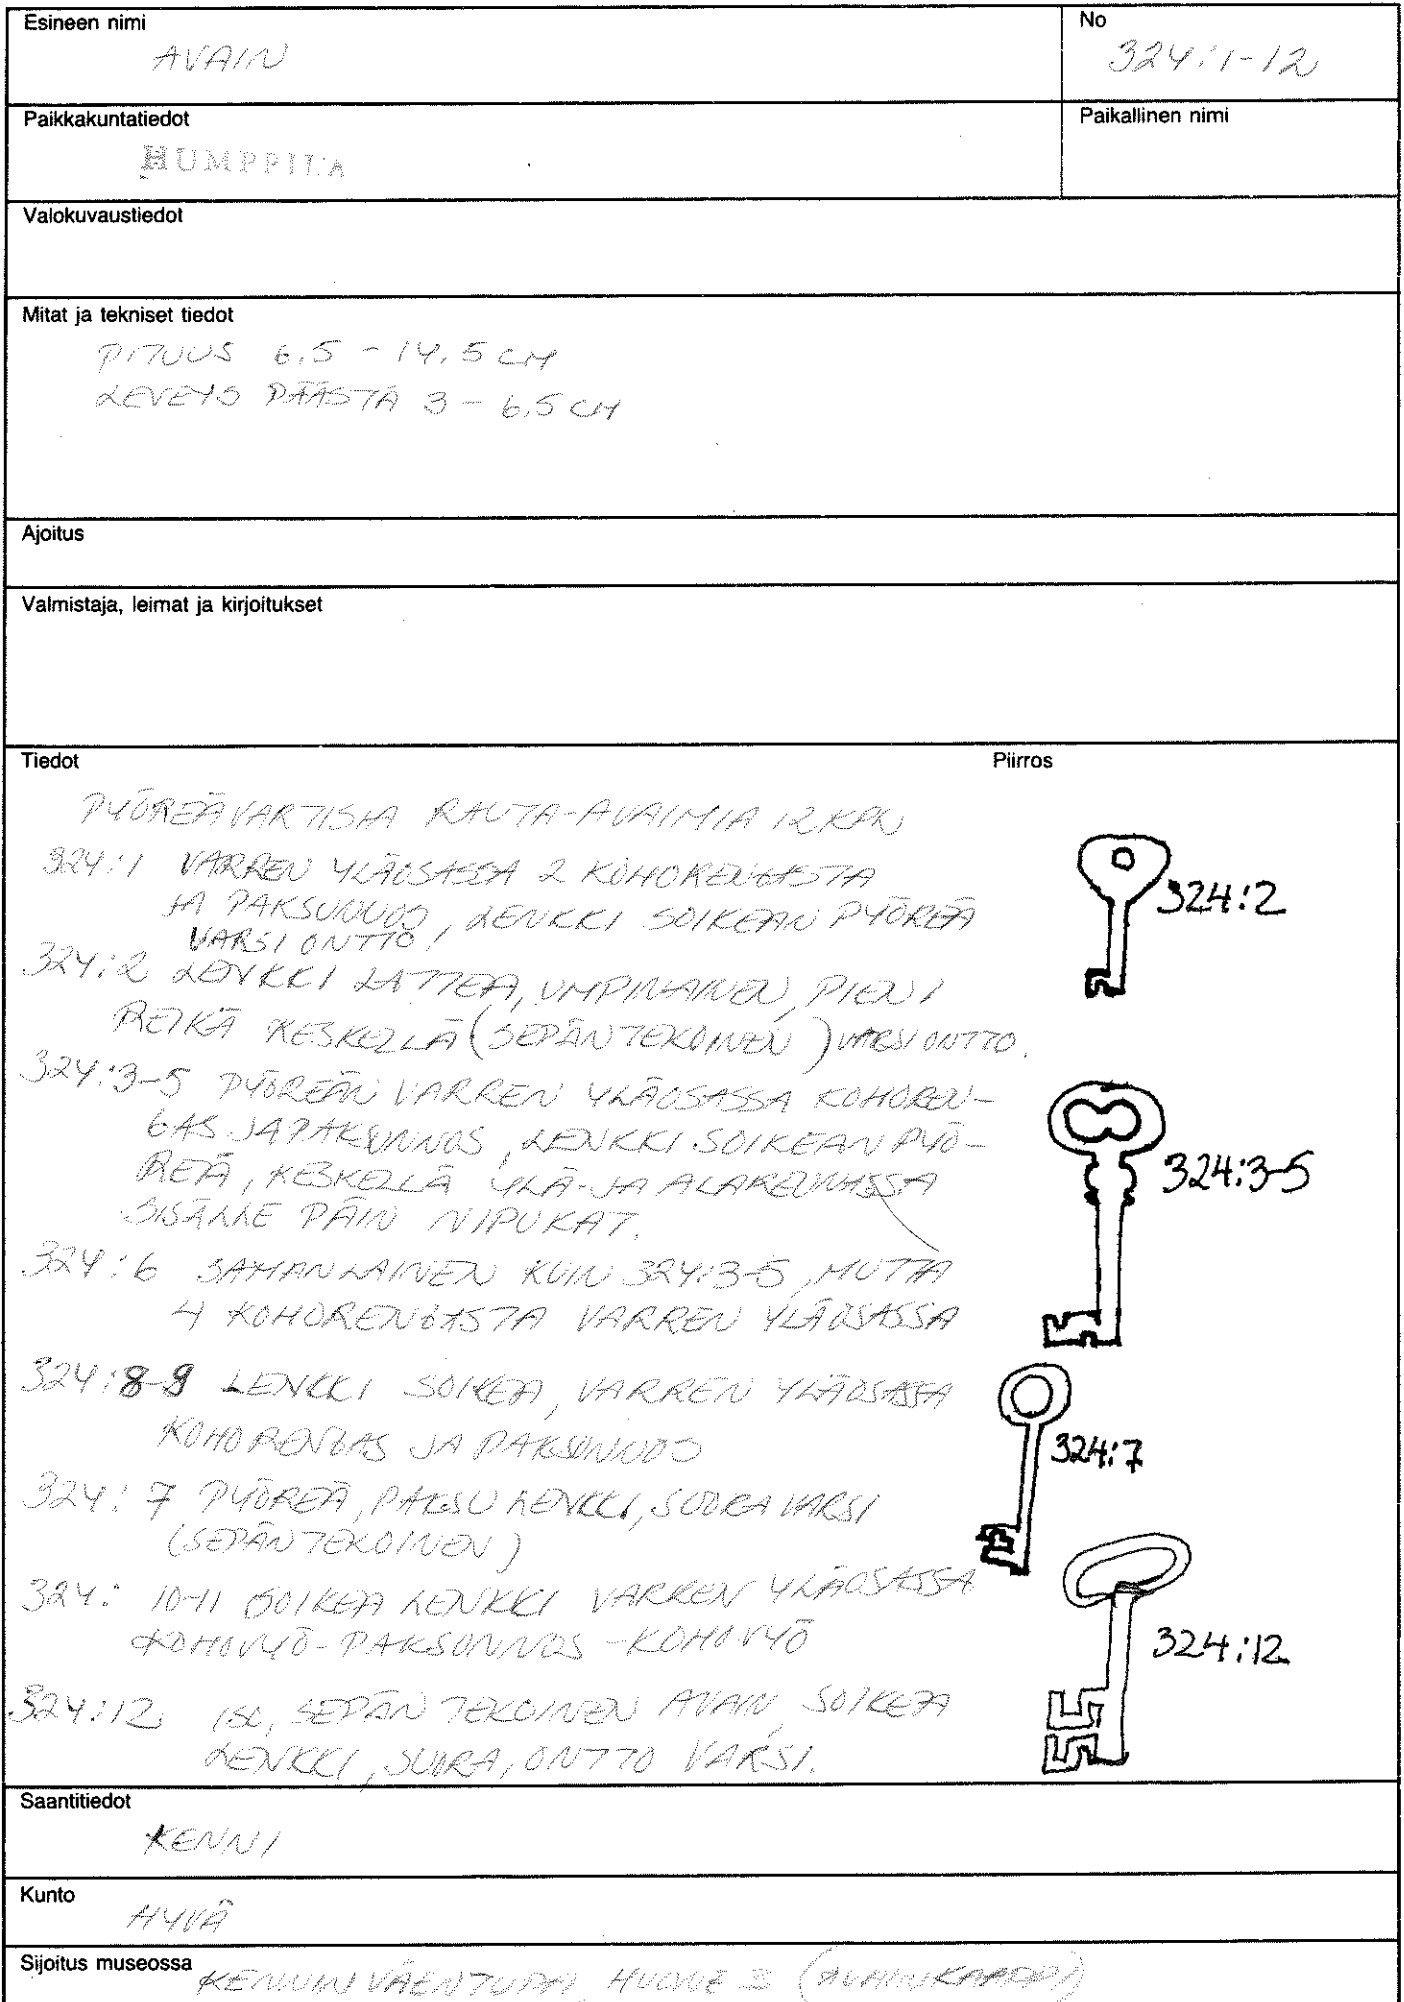 Esineen nimi
AVAIN
No
324:1-12
Paikkakuntatiedot
HUMPPILA
Paikallinen nimi
Valokuvaustiedot
Mitat ja tekniset tiedot
PITUUS 6,5 - 14,5 CM
LEVEYS PÄÄSTÄ 3 - 6,5 CM
Ajoitus
Valmistaja, leimat ja kirjoitukset
Tiedot
Piirros
PYÖREÄVARTISIA RAUTA-AVAIMIA 12 KPL
324:1 VARREN YLÄOSASSA 2 KOHORENGASTA
JA PAKSUNNOS, LENKKI SOIKEAN PYÖREÄ
VARSI ONTTO!
324:2 LENKKI LATTEA, UMPINAINEN, PIENI
REIKÄ KESKELLÄ (SEPÄN TEKOINEN) VARSI ONTTO.
324:3-5 PYÖREÄN VARREN YLÄOSASSA KOHOREN-
GAS JA PAKSUNNOS, LENKKI SOIKEAN PYÖ-
REÄ, KESKELLÄ YLÄ- JA ALAREUNASSA
SISÄLLE PÄIN NIPUKAT.
324:6 SAMANLAINEN KUIN 324:3-5, MUTTA
4 KOHORENGASTA VARREN YLÄOSASSA
324:8-9 LENKKI SOIKEA, VARREN YLÄOSASSA
KOHORENGAS JA PAKSUNNOS
324:7 PYÖREÄ, PAKSU LENKKI, SUORA VARSI
(SEPÄN TEKOINEN)
324: 10-11 SOIKEA LENKKI VARREN YLÄOSASSA
KOHOVYÖ-PAKSUNNOS-KOHOVYÖ
324:12 ISO, SEPÄN TEKOINEN AVAIN, SOIKEA
LENKKI, SUORA, ONTTO VARSI.
324:2
324:3-5
324:7
324:12
Saantitiedot
KENNI
Kunto
HYVÄ
Sijoitus museossa
KENNIN VÄENTUPA, HUONE 3 (AVAINKAAPPI)